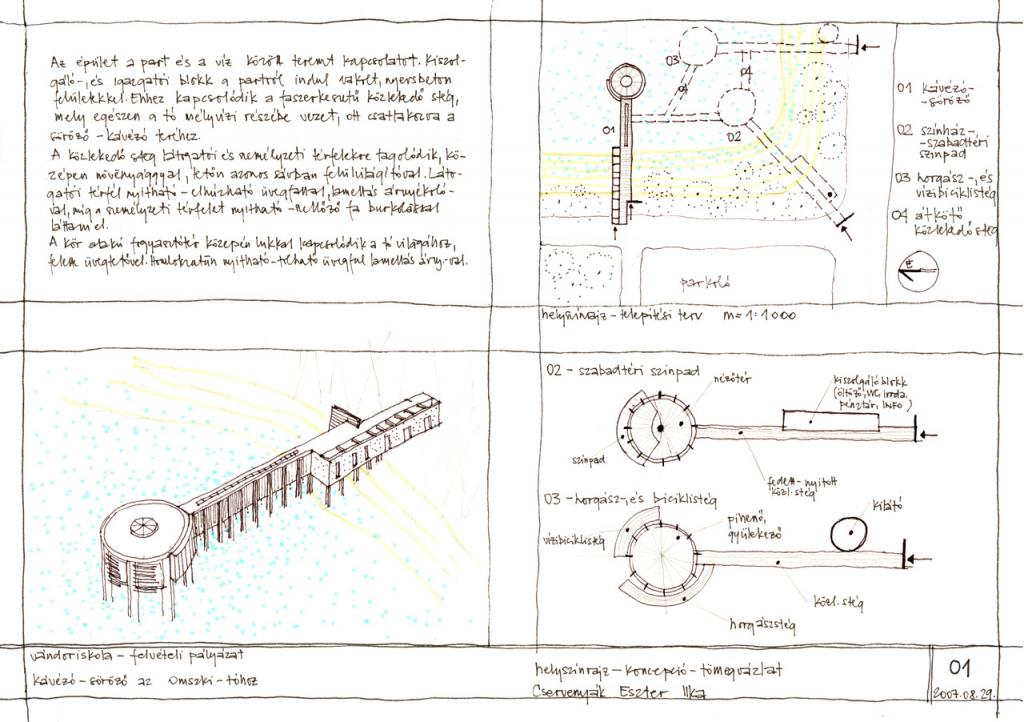 Az épület a part és a víz között teremt kapcsolatot. Kiszol-
gáló-, és igazgatói blokk a partról indul vakolt, nyersbeton
felületekkel. Ehhez kapcsolódik a faszerkezetű közlekedő stég,
mely egészen a tó mélyvízi részébe vezet, ott csatlakozva a
söröző-kávézó teréhez.
A közlekedő stég látogatói és személyzeti térfelekre tagolódik, kö-
zépen növényággyal, tetőn azonos sávban felülvilágítóval. Láto-
gatói térfél nyitható-elhúzható üvegfallal, lamellás árnyékoló-
val, míg a személyzeti térfelet nyitható-szellőző fa burkolással
láttam el.
A kör alakú fogyasztótér közepén lukkal kapcsolódik a tó világához,
felette üvegtetővel. Homlokzatán nyitható-tolható üvegfal lamellás árny.-val.
01
02
03
04
04
parkoló
01 kávézó-
-söröző
02 színház-
-szabadtéri
színpad
03 horgász-, és
vízibiciklistég
04 átkötő
közlekedő stég
É
helyszínrajz-telepítési terv m=1:1000
02 - szabadtéri színpad
nézőtér
kiszolgáló blokk
(öltöző, WC, iroda,
pénztár, INFO)
színpad
fedett-nyitott
közl. stég
03 - horgász-, és biciklistég
vízibiciklistég
pihenő,
gyülekező
kilátó
közl. stég
horgászstég
vándoriskola - felvételi pályázat
kávézó-söröző az Omszki-tóhoz
helyszínrajz-koncepció-tömegvázlat
Cservenyák Eszter Ilka
01
2007.08.29.